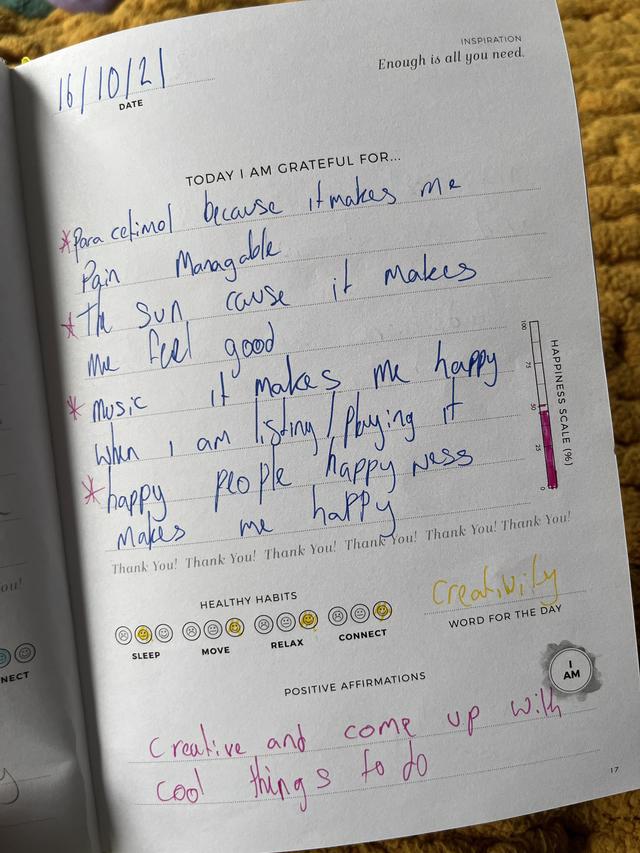 INSPIRATION
Enough is all you need.
16/10/21
DATE
TODAY I AM GRATEFUL FOR...
*Paracetimol because it makes me
Pain Managable
*The sun cause it makes
me feel good
*music it makes me happy
when I am listing/playing it
*happy people happyness
makes me happy
100
75
50
25
0
HAPPINESS SCALE (%)
Thank You! Thank You! Thank You! Thank You! Thank You! Thank You!
HEALTHY HABITS
SLEEP MOVE RELAX CONNECT
Creativity
WORD FOR THE DAY
POSITIVE AFFIRMATIONS
I
AM
Creative and come up with
cool things to do
17
ou!
NECT